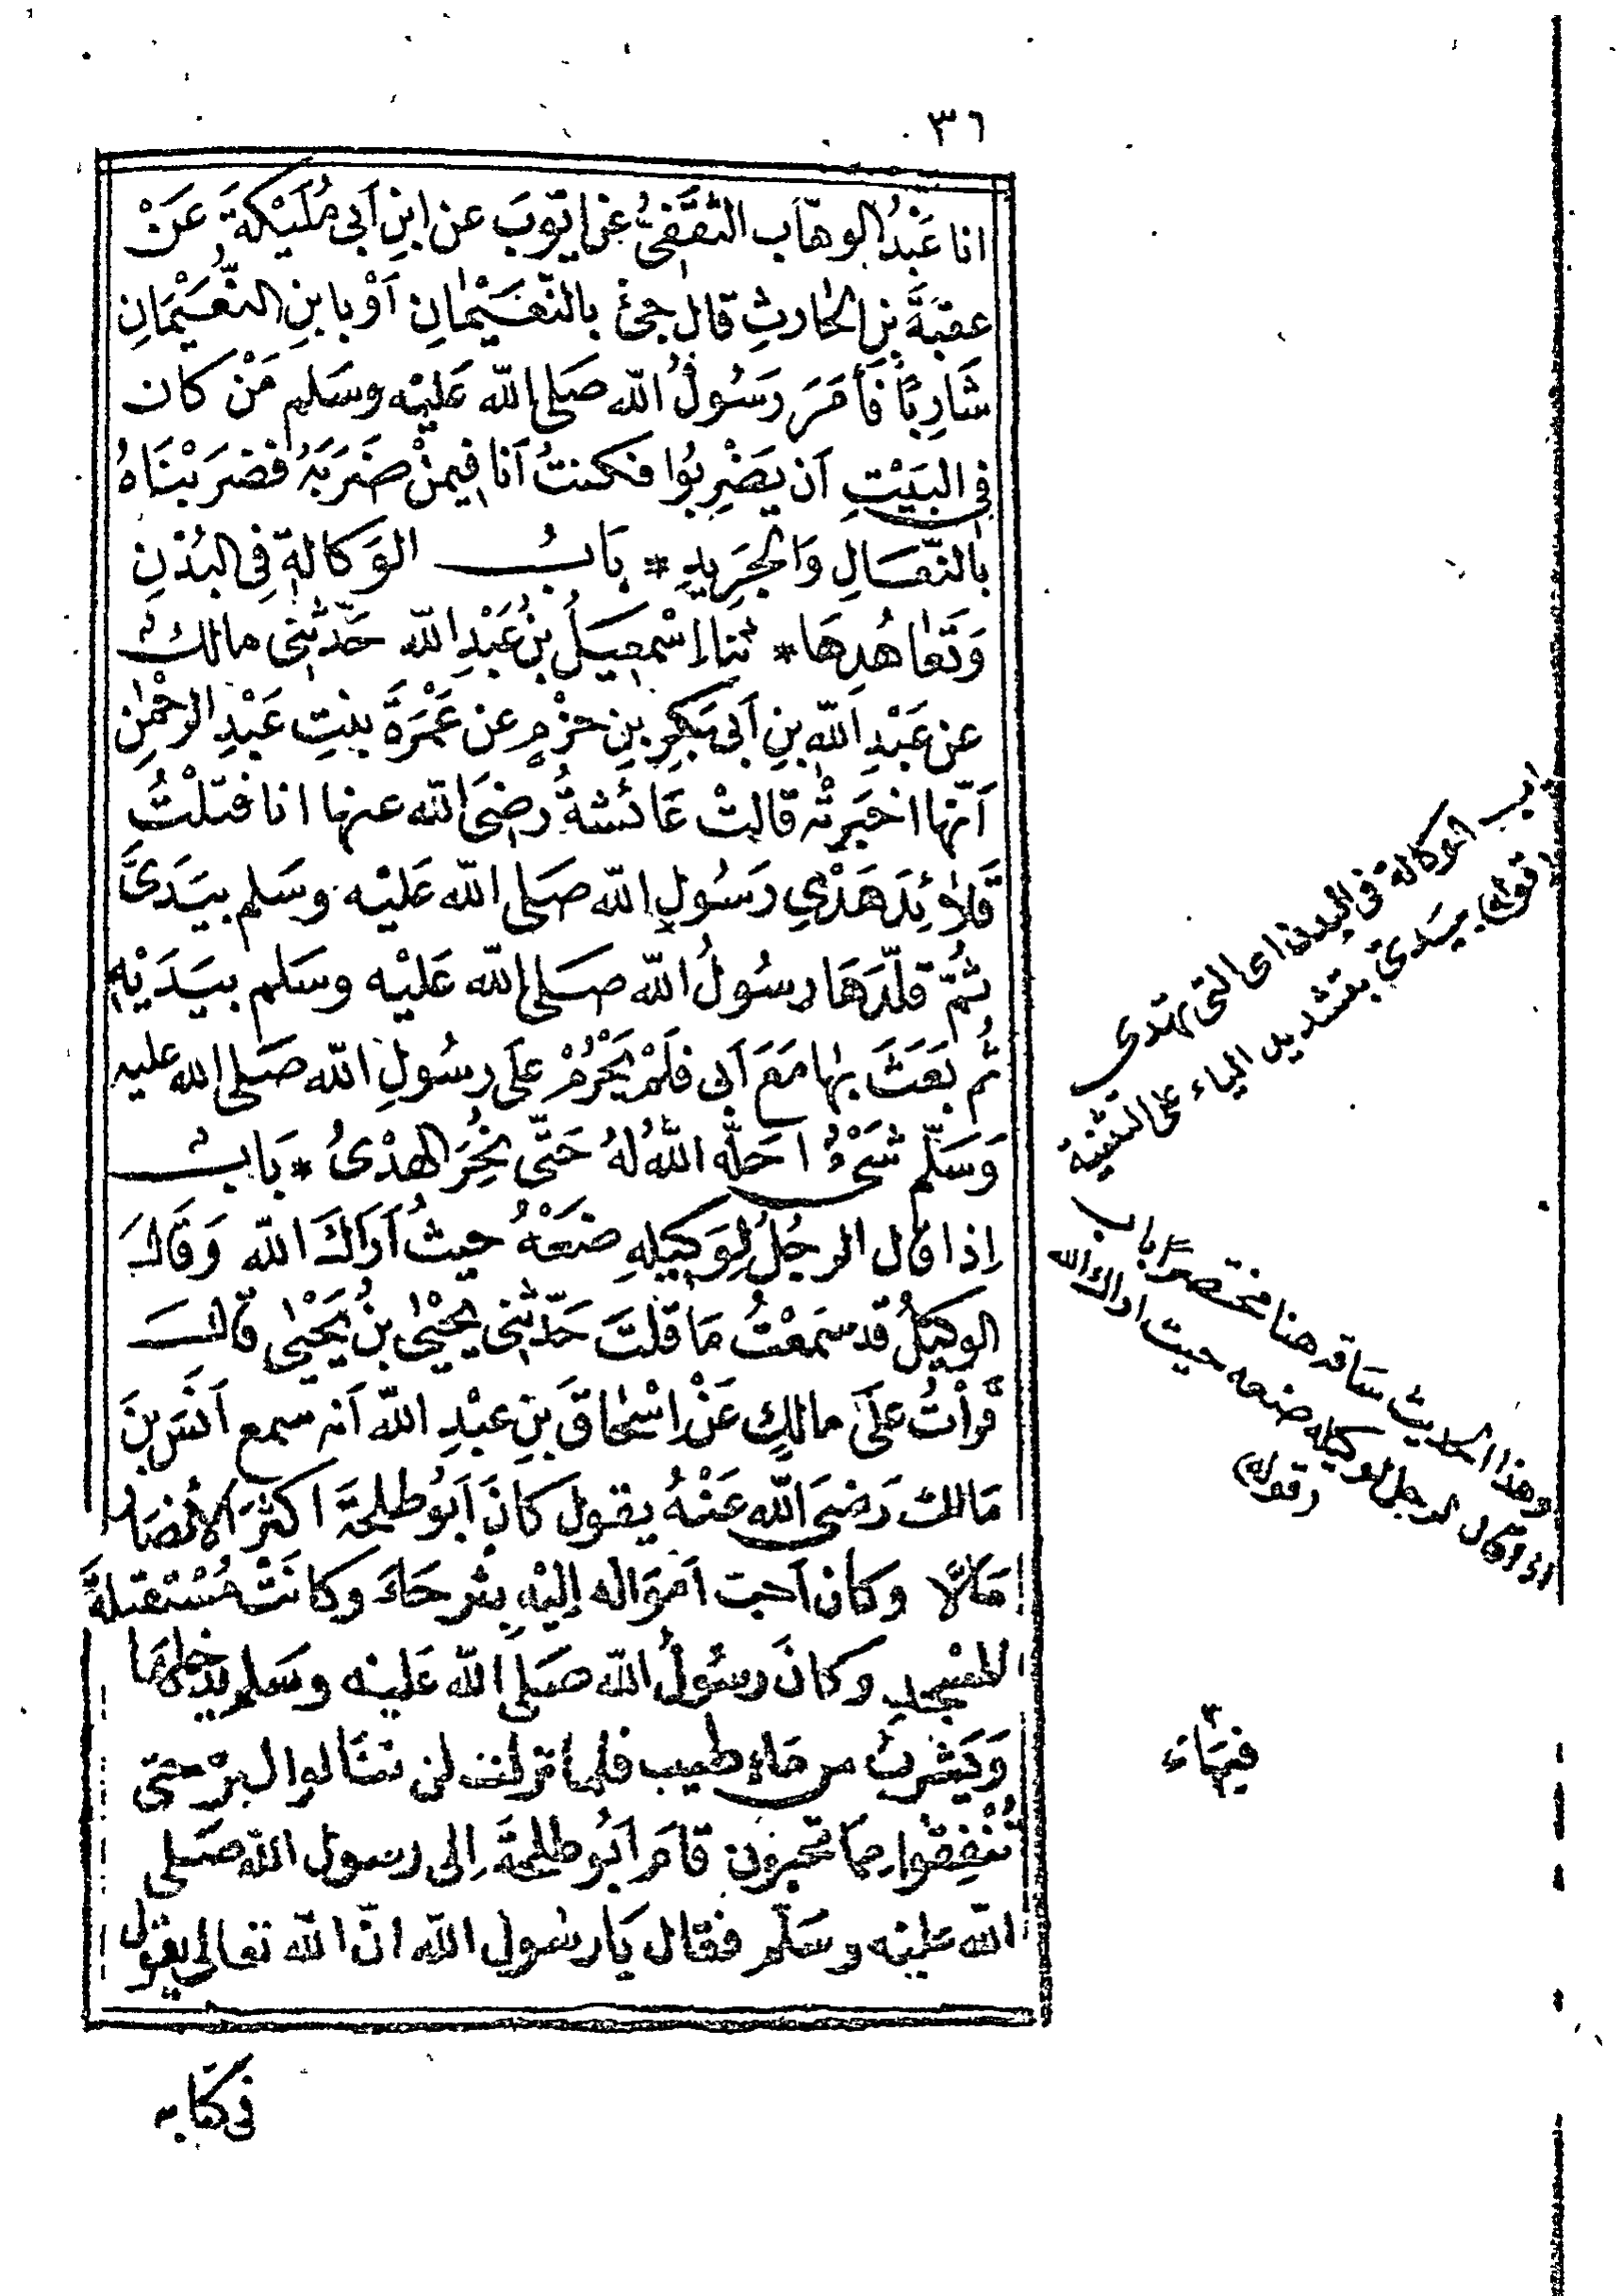 ٣٦
انا عَبْدُ الوهّاب الثقفِىُّ عن ايّوبَ عن ابنِ اَبى مُلَيْكةَ عَنْ
عقبَةَ بنِ الحٰارثِ قال جئَ بالنّعَيْمٰانِ اَوْ بابنِ النّعَيْمَانِ
شَارِبًا فَأمَرَ رَسُولُ الله صَلى الله عَليْه وسَلم مَنْ كان
فِى البَيْتِ اَن يَضْرِبُوا فكنتُ اَنا فيمنْ ضَرَبَهُ فضَربْنَاهُ
بالنّعَالِ وَالجَرِيدِ * بَابُ الوَكالةِ فِى البُدْنِ
وَتَعٰاهُدِهَا * ثنا اِسْمعِيلُ بنُ عَبْدِ الله حَدّثنِى مالكٌ
عن عَبْدِ اللهِ بنِ اَبى بَكرِ بنِ حَزْمٍ عن عَمْرَةَ بنتِ عَبْدِ الرحْمٰنِ
اَنّها اخبَرتْه قالتْ عَائشةُ رضِىَ الله عنها انا فتَلْتُ
قَلاٰئِدَ هَدْىِ رَسُولِ الله صَلى الله عَليْه وسَلم بيَدَىَّ
ثُمّ قلّدَهَا رسُولُ الله صَلى الله عَليْه وسَلم بيَدَيْهِ
ثُم بَعَثَ بهٰا مَعَ اَبى فَلَمْ يَحْرُمْ عَلى رسُولِ الله صَلى الله عليه
وَسَلّم شَىْءٌ احَلّه اللهُ لهُ حَتّى نُحِرَ الهَدْىُ * بَابٌ
اِذا قال الرجُلُ لِوَكيلِهِ ضَعْهُ حيثُ اَرَاكَ الله وَقَالَ
الوكيلُ قد سَمعْتُ مَا قلتَ حَدّثنِى يحْيٰى بنُ يَحْيٰى قالَ
قرأتُ عَلَى مالكٍ عَنْ اِسْحٰاقَ بنِ عبْدِ الله اَنه سمع اَنَسَ بنَ
مَالك رَضىَ الله عَنْهُ يقول كانَ اَبُو طلحَةَ اكثرَ الانصَار
مَالًا وَكان اَحب اَموَاله اِليْهِ بئرحَاءَ وكانتْ مُسْتقبلةَ
المسْجدِ وكانَ رسُولُ الله صَلى الله عَليْه وسَلم يَدْخلهَا
وَيَشْربُ من مَاءٍ طيب فلما نزلت لن تنَالوا البرّ حتى
تُنْفِقُوا مِمّا تحبون قامَ اَبُو طلحَةَ اِلى رسول الله صَلى
الله عليْه وسَلّم فقال يَا رسُول الله انّ الله تعالى يقول
فى كتابه
باب الوكالة فى البدن اى التى تهدى
(قوله) بيدىّ بتشديد الياء على التثنية
وهذا الحديث ساقه هنا مختصرًا باب
اذا قال الرجل لوكيله ضعه حيث اراك الله
(قوله)
فيهَا